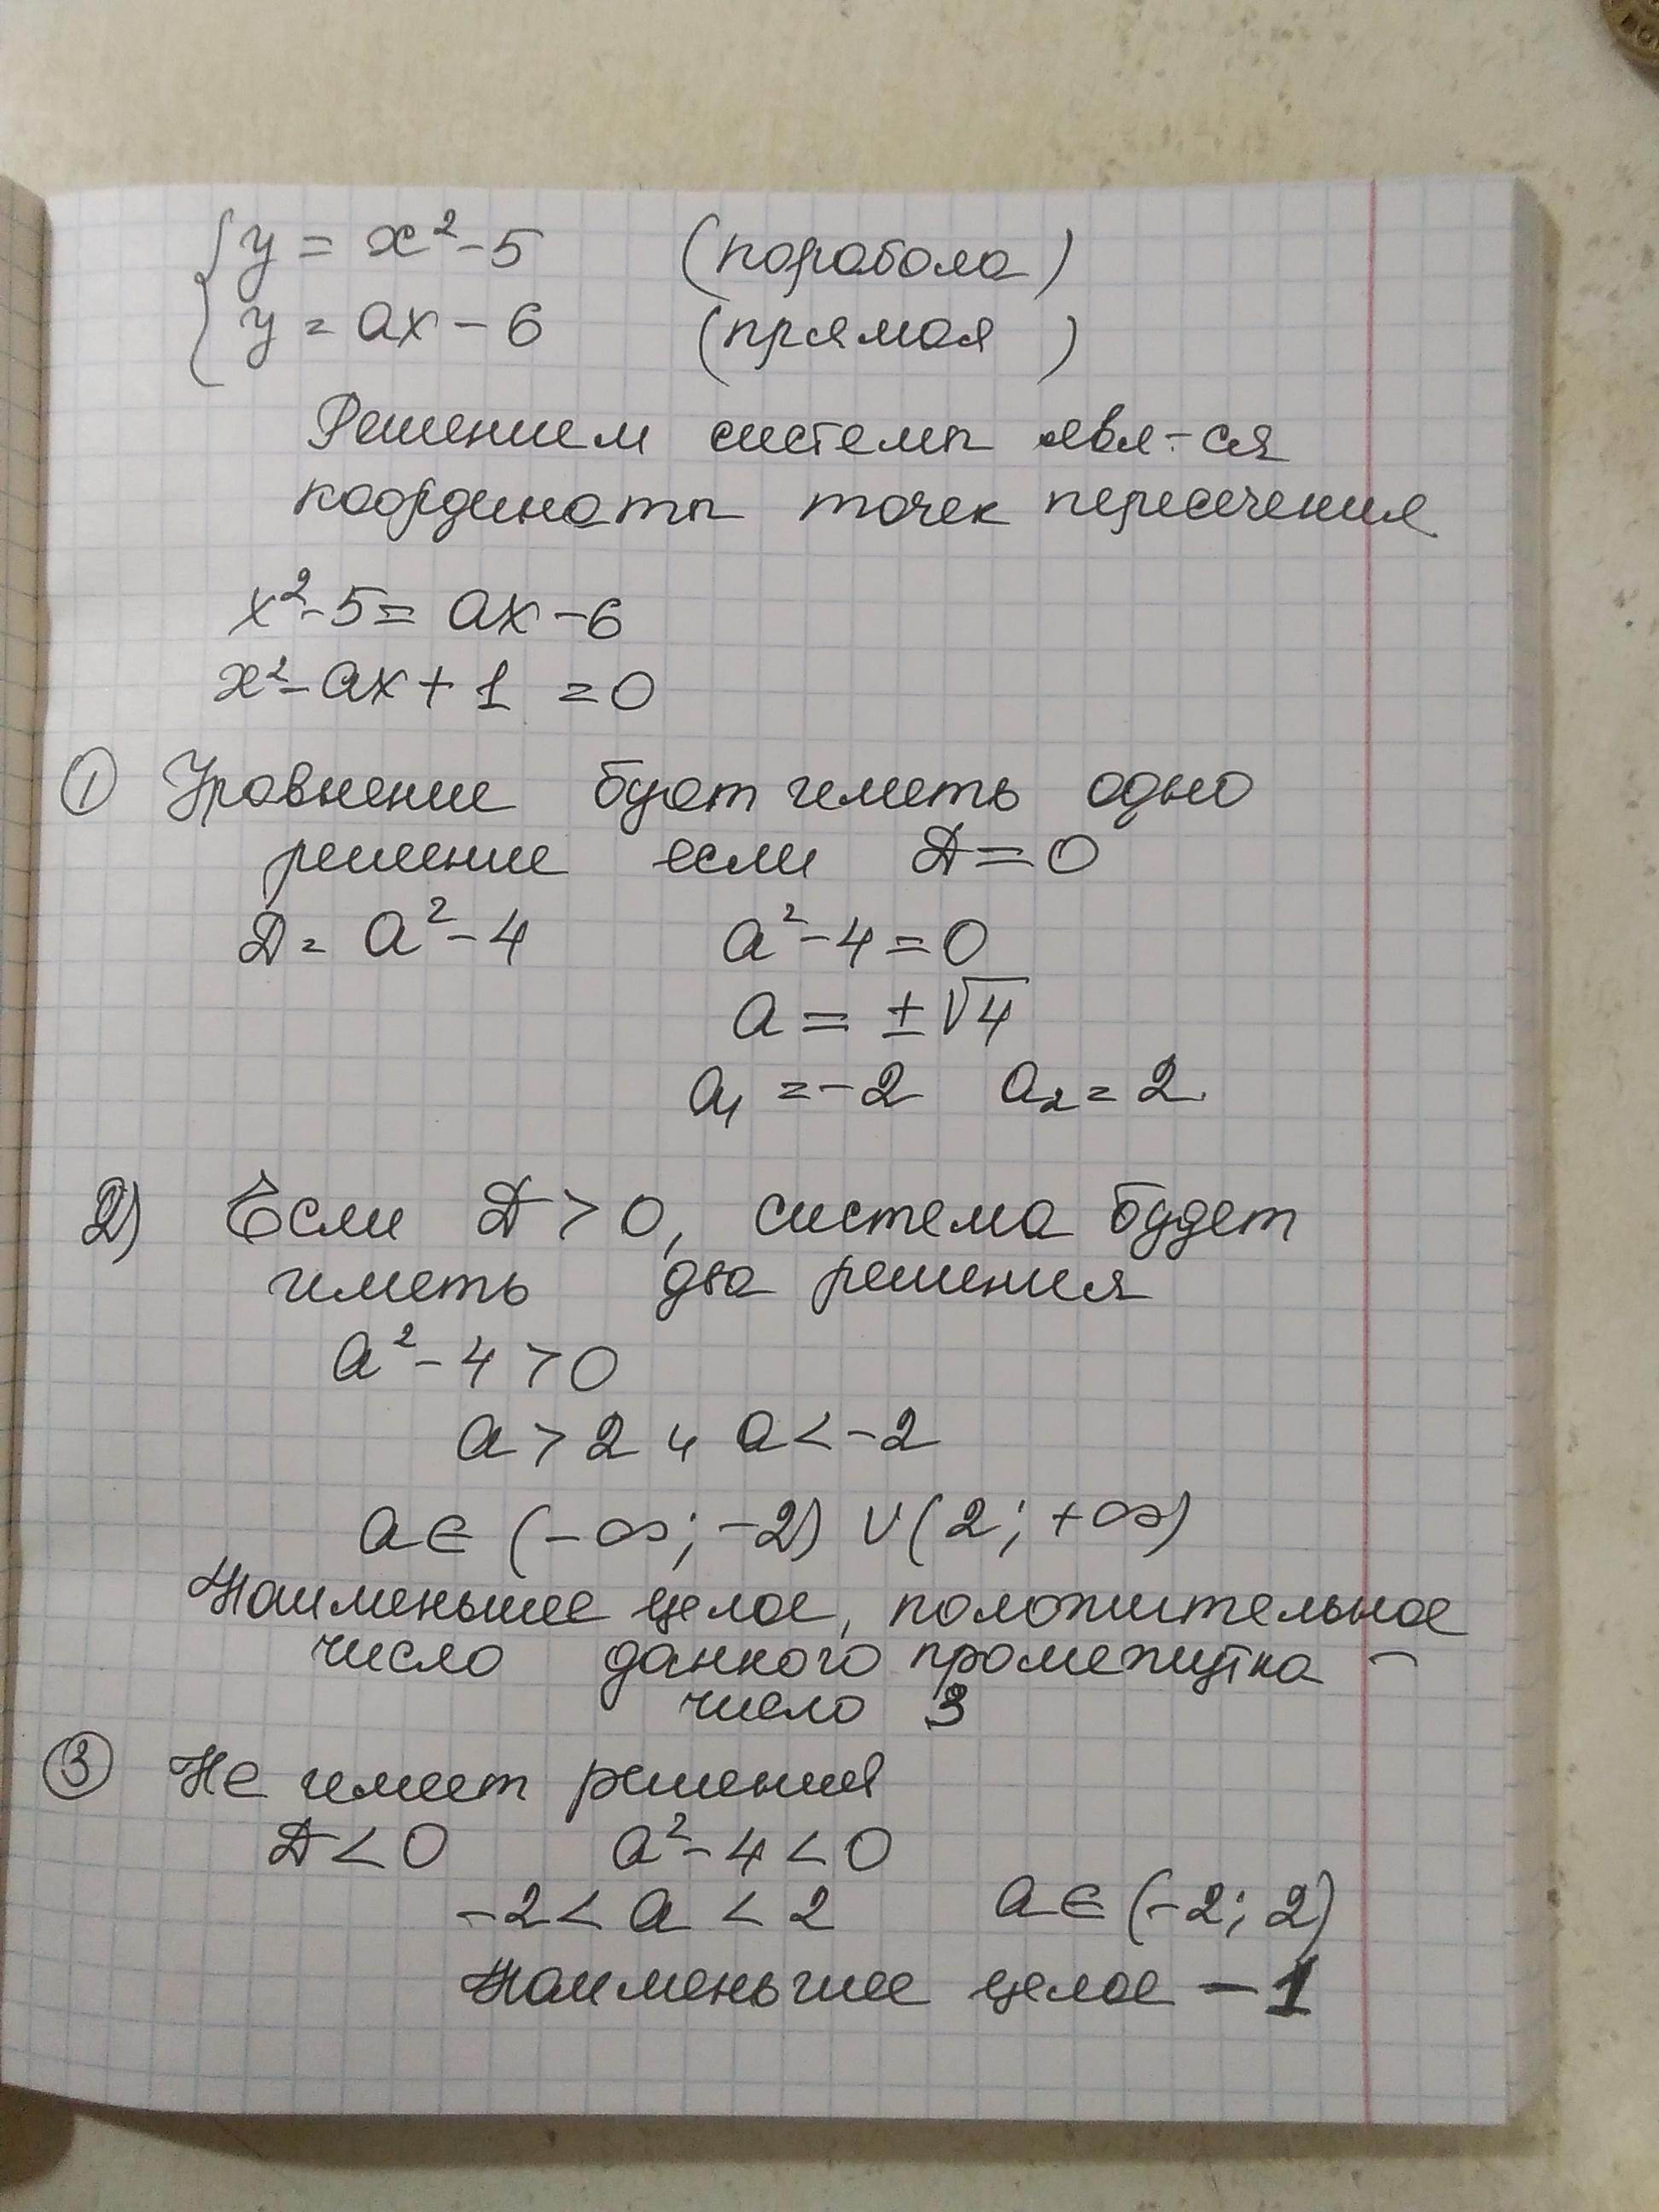 { y = x² - 5 (порабола)
y = ax - 6 (прямая)
Решением системы явл-ся
координаты точек пересечения
x² - 5 = ax - 6
x² - ax + 1 = 0
① Уравнение будет иметь одно
решение если Д = 0
Д = a² - 4 a² - 4 = 0
a = ±√4
a₁ = -2 a₂ = 2
2) Если Д > 0, система будет
иметь два решения
a² - 4 > 0
a > 2 и a < -2
a ∈ (-∞; -2) ∪ (2; +∞)
Наименьшее целое, положительное
число данного промежутка -
число 3
③ Не имеет решения
Д < 0 a² - 4 < 0
-2 < a < 2 a ∈ (-2; 2)
Наименьшее целое -1